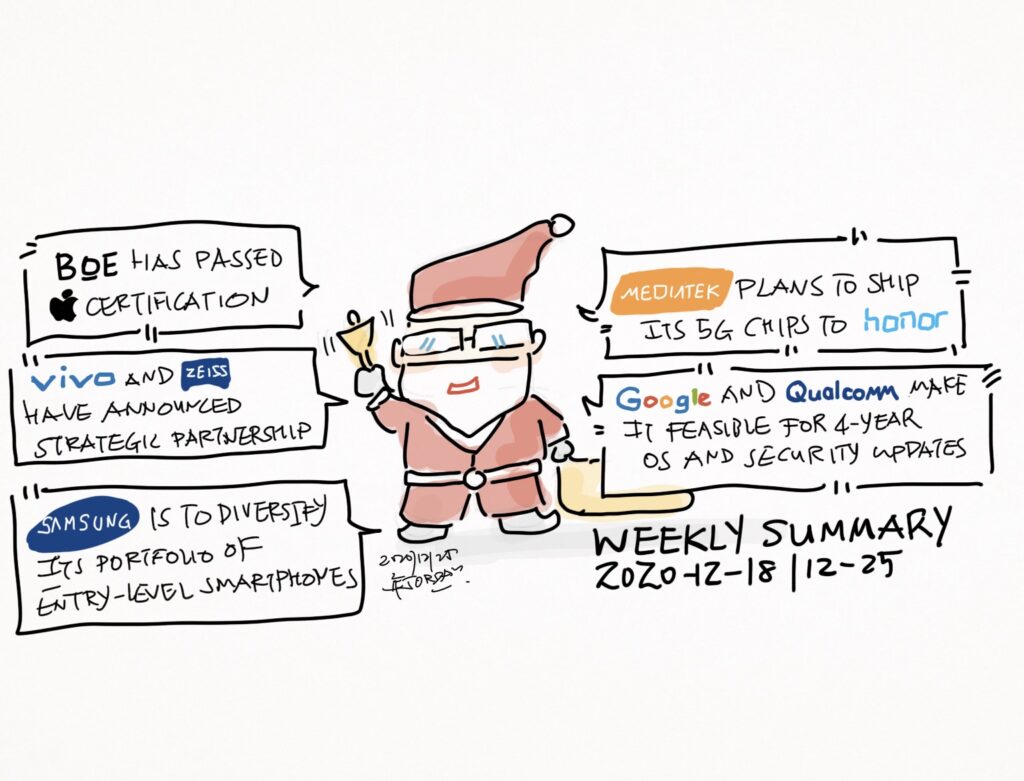 BOE HAS PASSED
CERTIFICATION
vivo AND ZEISS
HAVE ANNOUNCED
STRATEGIC PARTNERSHIP
SAMSUNG IS TO DIVERSIFY
ITS PORTFOLIO OF
ENTRY-LEVEL SMARTPHONES
MEDIATEK PLANS TO SHIP
ITS 5G CHIPS TO honor
Google AND Qualcomm MAKE
IT FEASIBLE FOR 4-YEAR
OS AND SECURITY UPDATES
2020/12/25
JORDAN
WEEKLY SUMMARY
2020-12-18 | 12-25